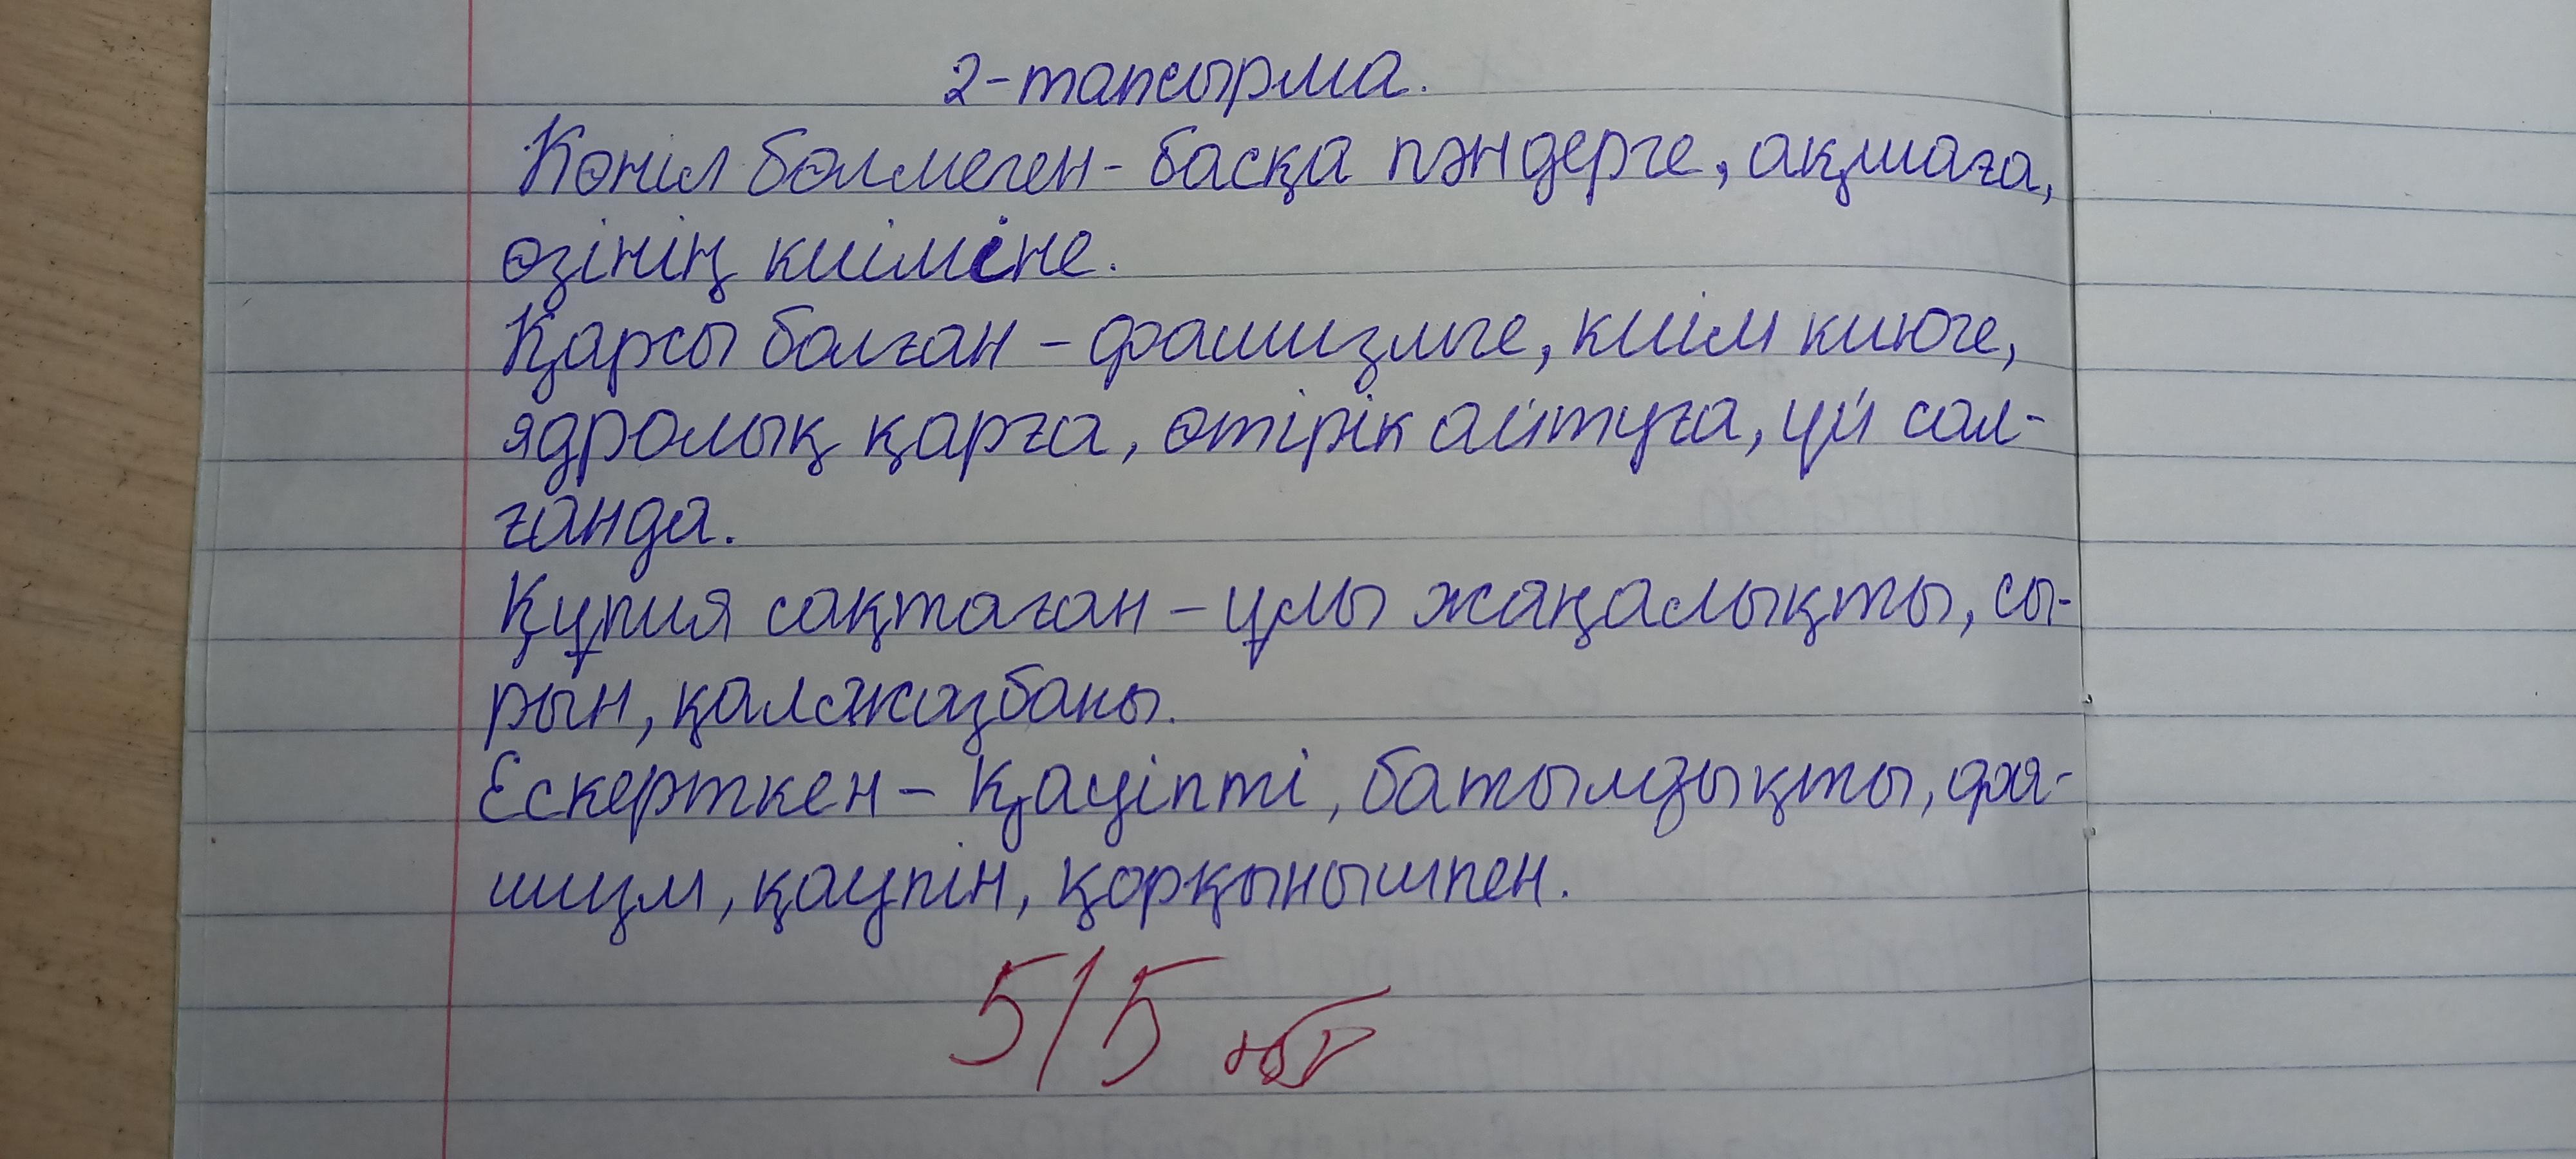 2-тапсырма.
Көніл бөлмеген - басқа пәндерге, ақшаға,
өзінің киіміне.
Қарсы болған - фашизмге, киім киюге,
ядролық қарға, өтірік айтуға, үй сал-
ғанда.
Құпия сақтаған - ұлы жаңалықты, сы-
рын, қолжазбаны.
Ескерткен - Қауіпті, батылдықты, фа-
шизм, қаупін, қорқынышпен.
5/5